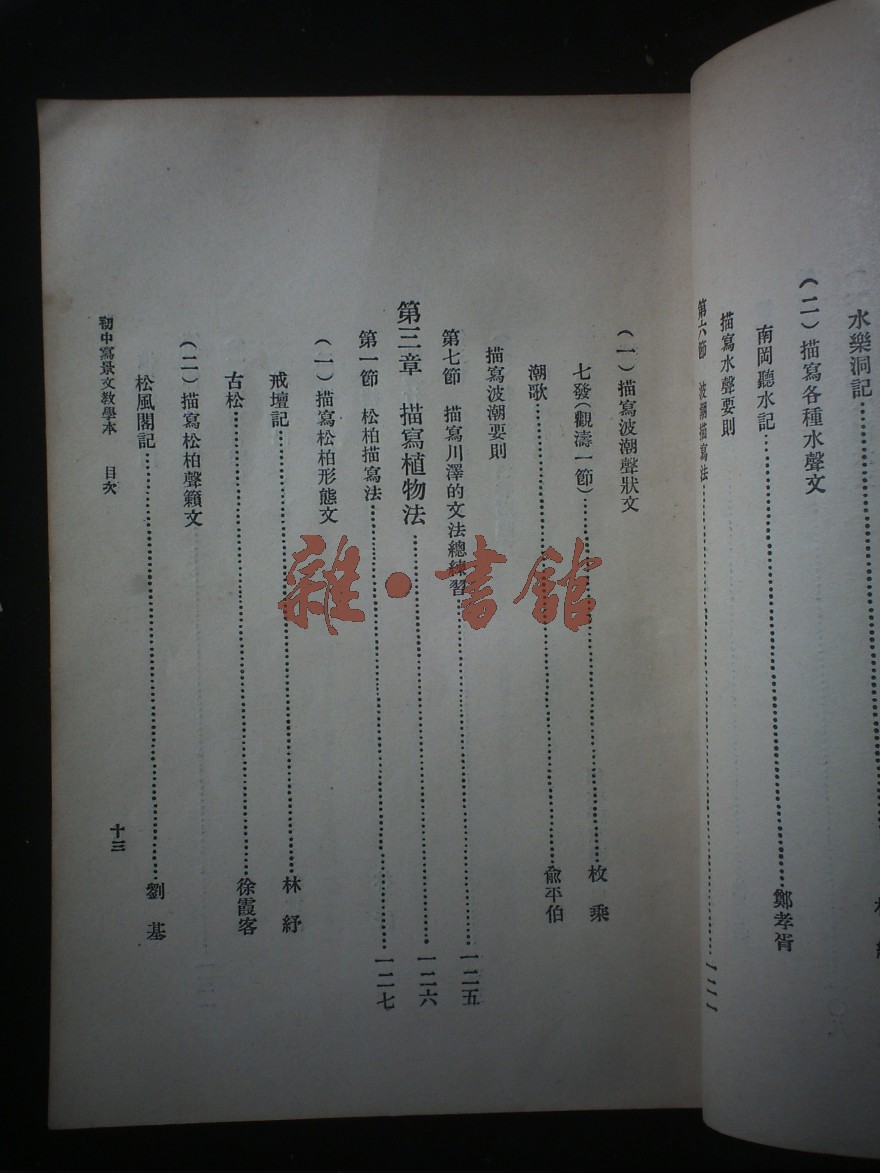 水樂洞記
（二）描寫各種水聲文
南岡聽水記 鄭孝胥
描寫水聲要則
第六節 波潮描寫法
（一）描寫波潮聲狀文
七發（觀濤一節） 枚乘
潮歌 俞平伯
描寫波潮要則
第七節 描寫川澤的文法總練習 一二五
第三章 描寫植物法 一二六
第一節 松柏描寫法 一二七
（一）描寫松柏形態文
戒壇記 林紓
古松 徐霞客
（二）描寫松柏聲籟文
松風閣記 劉基
初中寫景文教學本 目次 十三
雜·書館